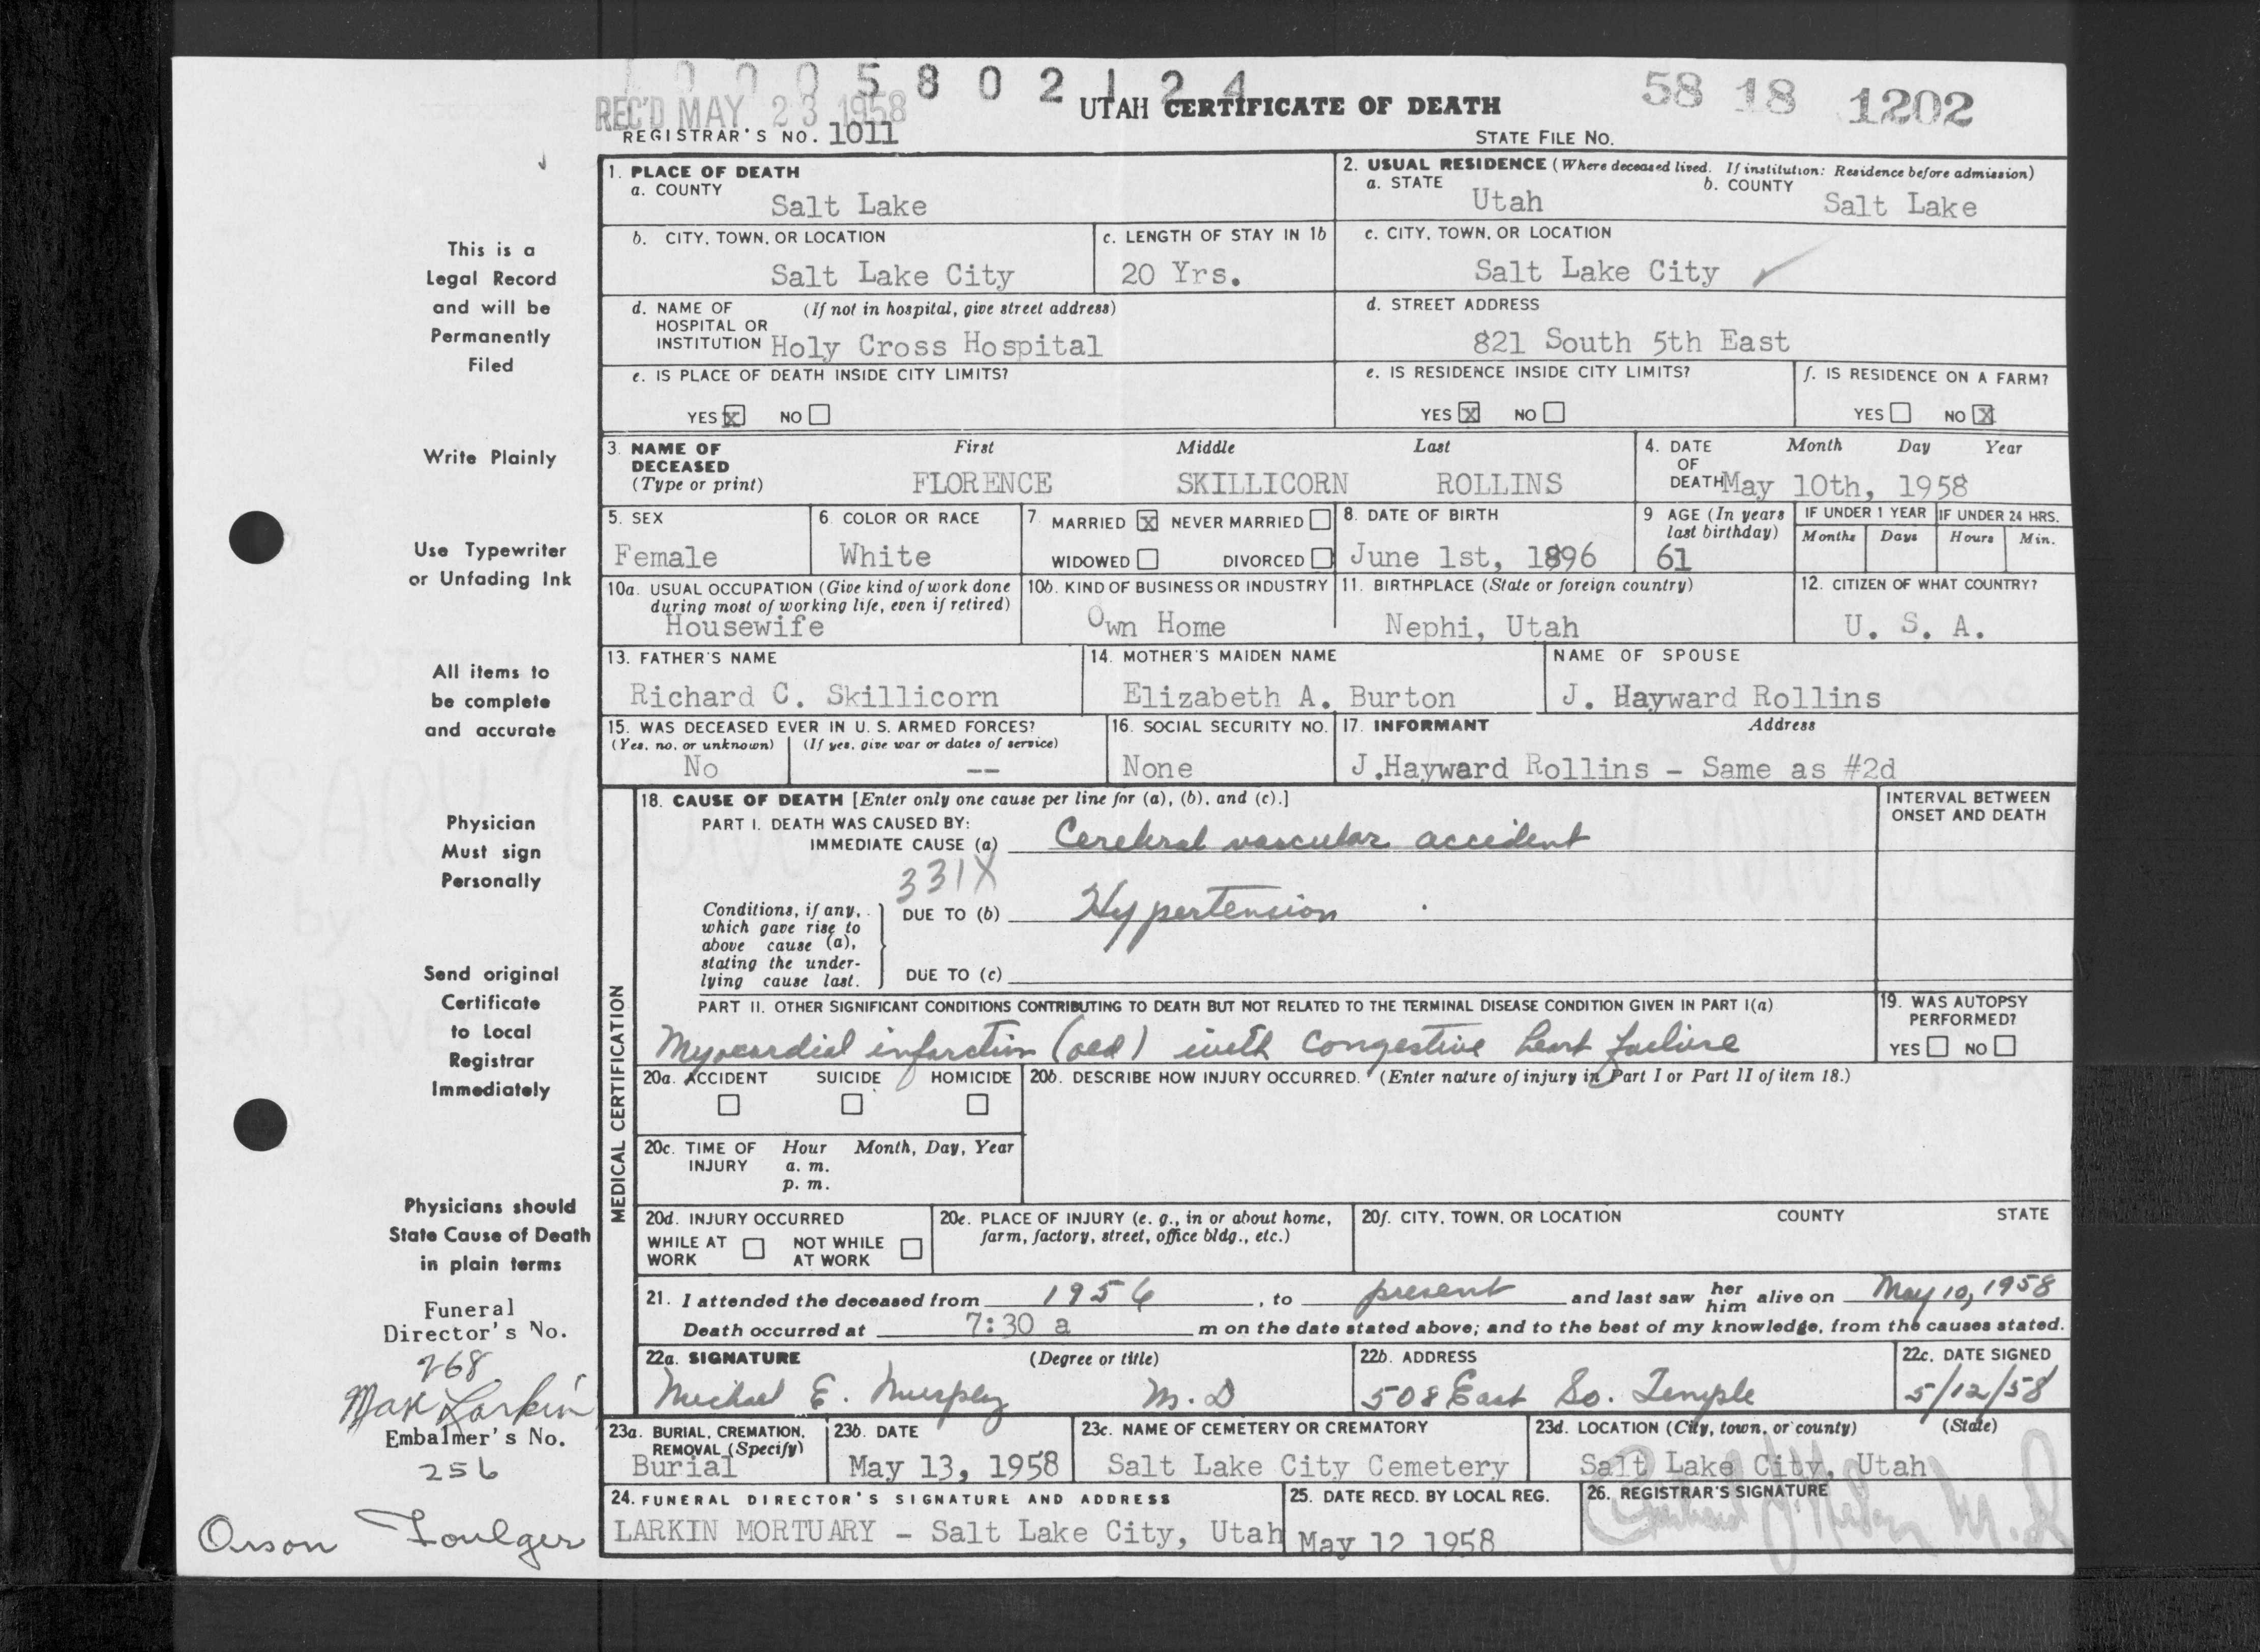 1 0 0 0 5 8 0 2 1 2 4
REC'D MAY 23 1958
UTAH CERTIFICATE OF DEATH
58 18 1202
REGISTRAR'S NO. 1011
STATE FILE NO.
1. PLACE OF DEATH
a. COUNTY
Salt Lake
2. USUAL RESIDENCE (Where deceased lived. If institution: Residence before admission)
a. STATE
Utah
b. COUNTY
Salt Lake
b. CITY, TOWN, OR LOCATION
Salt Lake City
c. LENGTH OF STAY IN 1b
20 Yrs.
c. CITY, TOWN, OR LOCATION
Salt Lake City
d. NAME OF HOSPITAL OR INSTITUTION
(If not in hospital, give street address)
Holy Cross Hospital
d. STREET ADDRESS
821 South 5th East
e. IS PLACE OF DEATH INSIDE CITY LIMITS?
YES X NO
e. IS RESIDENCE INSIDE CITY LIMITS?
YES X NO
f. IS RESIDENCE ON A FARM?
YES NO X
3. NAME OF DECEASED (Type or print)
First Middle Last
FLORENCE SKILLICORN ROLLINS
4. DATE OF DEATH
Month Day Year
May 10th, 1958
5. SEX
Female
6. COLOR OR RACE
White
7. MARRIED X NEVER MARRIED
WIDOWED DIVORCED
8. DATE OF BIRTH
June 1st, 1896
9 AGE (In years last birthday)
61
IF UNDER 1 YEAR
Months Days
IF UNDER 24 HRS.
Hours Min.
10a. USUAL OCCUPATION (Give kind of work done during most of working life, even if retired)
Housewife
10b. KIND OF BUSINESS OR INDUSTRY
Own Home
11. BIRTHPLACE (State or foreign country)
Nephi, Utah
12. CITIZEN OF WHAT COUNTRY?
U. S. A.
13. FATHER'S NAME
Richard C. Skillicorn
14. MOTHER'S MAIDEN NAME
Elizabeth A. Burton
NAME OF SPOUSE
J. Hayward Rollins
15. WAS DECEASED EVER IN U. S. ARMED FORCES?
(Yes, no, or unknown) (If yes, give war or dates of service)
No --
16. SOCIAL SECURITY NO.
None
17. INFORMANT Address
J.Hayward Rollins - Same as #2d
MEDICAL CERTIFICATION
18. CAUSE OF DEATH [Enter only one cause per line for (a), (b), and (c).]
INTERVAL BETWEEN ONSET AND DEATH
PART I. DEATH WAS CAUSED BY:
IMMEDIATE CAUSE (a) Cerebral vascular accident
331X
Conditions, if any, which gave rise to above cause (a), stating the underlying cause last.
DUE TO (b) Hypertension
DUE TO (c)
PART II. OTHER SIGNIFICANT CONDITIONS CONTRIBUTING TO DEATH BUT NOT RELATED TO THE TERMINAL DISEASE CONDITION GIVEN IN PART I(a)
Myocardial infarction (old) with Congestive heart failure
19. WAS AUTOPSY PERFORMED?
YES NO
20a. ACCIDENT SUICIDE HOMICIDE
20b. DESCRIBE HOW INJURY OCCURRED. (Enter nature of injury in Part I or Part II of item 18.)
20c. TIME OF INJURY
Hour Month, Day, Year
a. m.
p. m.
20d. INJURY OCCURRED
WHILE AT WORK NOT WHILE AT WORK
20e. PLACE OF INJURY (e. g., in or about home, farm, factory, street, office bldg., etc.)
20f. CITY, TOWN, OR LOCATION COUNTY STATE
21. I attended the deceased from 1956, to present and last saw her him alive on May 10, 1958
Death occurred at 7:30 a m on the date stated above; and to the best of my knowledge, from the causes stated.
22a. SIGNATURE (Degree or title)
Michael E. Murphy M. D
22b. ADDRESS
508 East So. Temple
22c. DATE SIGNED
5/12/58
23a. BURIAL, CREMATION, REMOVAL (Specify)
Burial
23b. DATE
May 13, 1958
23c. NAME OF CEMETERY OR CREMATORY
Salt Lake City Cemetery
23d. LOCATION (City, town, or county) (State)
Salt Lake City, Utah
24. FUNERAL DIRECTOR'S SIGNATURE AND ADDRESS
LARKIN MORTUARY - Salt Lake City, Utah
25. DATE RECD. BY LOCAL REG.
May 12 1958
26. REGISTRAR'S SIGNATURE
This is a
Legal Record
and will be
Permanently
Filed
Write Plainly
Use Typewriter
or Unfading Ink
All items to
be complete
and accurate
Physician
Must sign
Personally
Send original
Certificate
to Local
Registrar
Immediately
Physicians should
State Cause of Death
in plain terms
Funeral
Director's No.
268
Max Larkin
Embalmer's No.
256
Orson Foulger